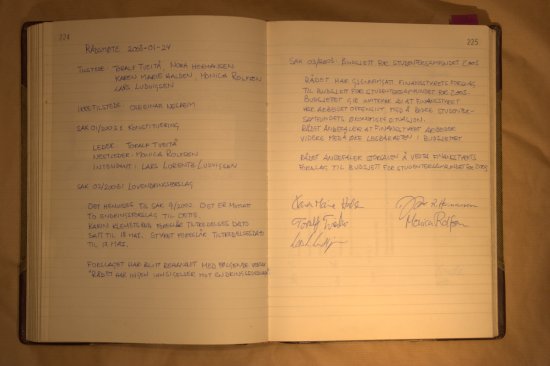 224
RÅDSMØTE 2003-01-24
TILSTEDE: TORALF TVEITÅ, NORA HERMANSEN
KAREN MARIE HALDEN, MONICA ROLFSEN
LARS LUDVIGSEN
IKKE TILSTEDE:
SAK 01/2003: KONSTITUERING
LEDER: TORALF TVEITÅ
NESTLEDER: MONICA ROLFSEN
INTENDANT: LARS LORENTZ LUDVIGSEN
SAK 02/2003: LOVENDRINGSFORSLAG
DET HENVISES TIL SAK 19/2002. DET ER MOTATT
TO ENDRINGSFORSLAG TIL DETTE.
KARIN FORESLÅR TILTREDELSES DATO
SATT TIL 18 MAI. STYRET FORESLÅR TILTREDELSESDATO
TIL 19 MAI.
FORSLAGET HAR BLITT BEHANDLET MED FØLGENDE VEDTAK
"RÅDET HAR INGEN INNSIGELSER MOT ENDRINGSFORSLAGET"
225
SAK 03/2003: BUDSJETT FOR STUDENTERSAMFUNDET 2003
RÅDET HAR GJENNOMGÅTT FINANSTYRETS FORSLAG
TIL BUDSJETT FOR STUDENTERSAMFUNDET FOR 2003.
BUDSJETTET GIR INNTRYKK AV AT FINANSTYRET
HAR ARBEIDET OFFENSIVT MED Å BEDRE STUDENTER-
SAMFUNDETS ØKONOMISKE SITUASJON.
RÅDET ANBEFALER AT FINANSTYRET ARBEIDER
VIDERE MED ØKE LESBARHETEN I BUDSJETTET
RÅDET ANBEFALER STORSALEN Å VEDTA FINANSTYRETS
FORSLAG TIL BUDSJETT FOR STUDENTERSAMFUNDET FOR 2003
Karen Marie Halden
R. Hermansen
Toralf Tveitå
Monica Rolfsen